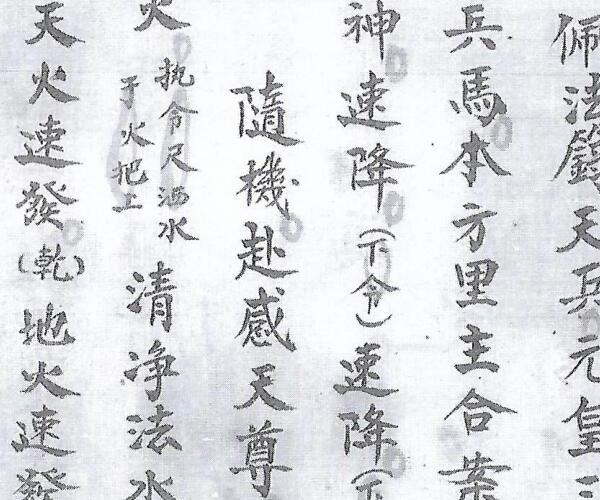 佩法籙天兵元皇
兵馬本方里主合
神速降（下令）速降（下
隨機赴感天尊
火 执令尺洒水于火把上 清净法水
天火速發（乾）地火速發